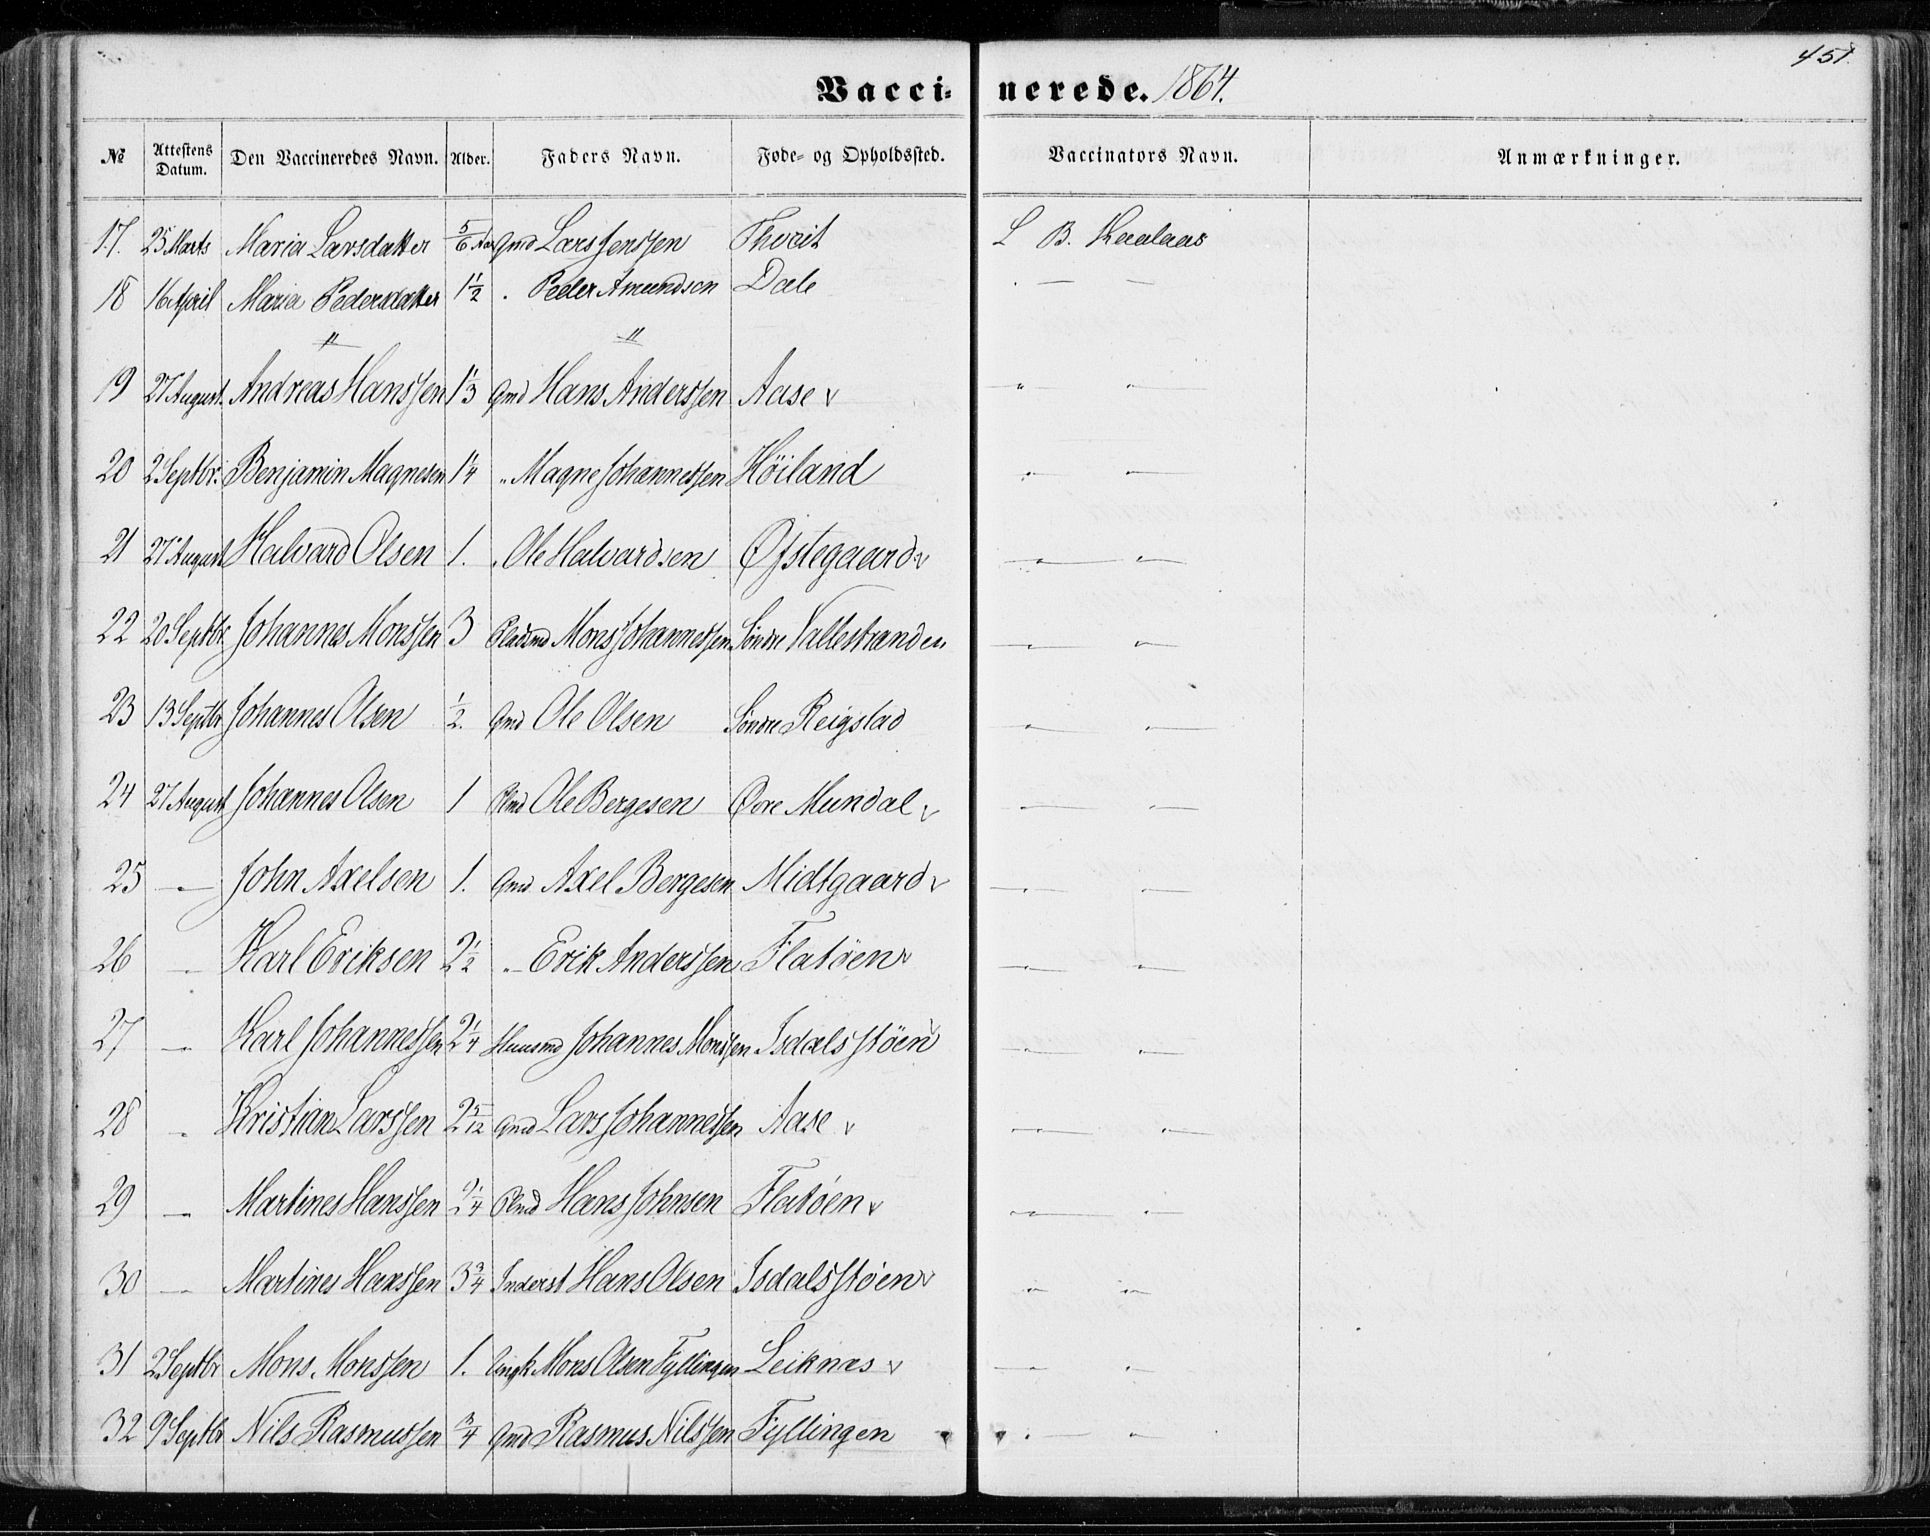 451.
Vaccinerede. 1864.
№ Attestens Datum. Den Vaccineredes Navn. Alder. Faders Navn. Føde- og Opholdssted. Vaccinators Navn. Anmærkninger.
17. 25 Marts Maria Larsdatter 5/6 Aar Gmd Lars Jenssen L B. Kaalaas
18 16 April Maria Pedersdatter 1 1/2 . Peder Amundsen Dale - -
" "
19 27 August. Andreas Hanssen 1 1/3 Gmd Hans Anderssen Aase v " -
20 2 Septbr. Benjamin Magnesen 1 1/4 " Magne Johannessen Høiland - -
21 27 August Halvard Olsen 1. " Ole Halvardsen Øfstegaard v - -
22 20 Septbr Johannes Monssen 3 Pladsmd Mons Johannessen Søndre Vallestranden - -
23 13 Septbr Johannes Olsen 1/2. Gmd Ole Olsen Søndre Reigstad - -
24 27 August Johannes Olsen 1 Plmd Ole Bergesen Øvre Mundal v - -
25 - John Axelsen 1. Gmd. Axel Bergesen Midtgaard v - -
26 - Karl Eriksen 2 1/2 " Erik Anderssen Flatøen v - -
27 - Karl Johannessen 2 1/4 Huusmd Johannes Monssen Isdalsstøen v - -
28 - Kristian Larssen 2 5/12 Gmd Lars Johannessen Aase v - -
29 - Martines Hanssen 2 1/4 Plmd Hans Johnsen Flatøen v - -
30 - Martines Hanssen 3 3/4 Inderst Hans Olsen Isdalsstøen v - -
31 2 Septbr Mons Monssen 1. Ungk Mons Olsen Fyllingen Leiknæs v - -
32 9 Septbr Nils Rasmussen 3/4 Gmd Rasmus Nilssen Fyllingen - -